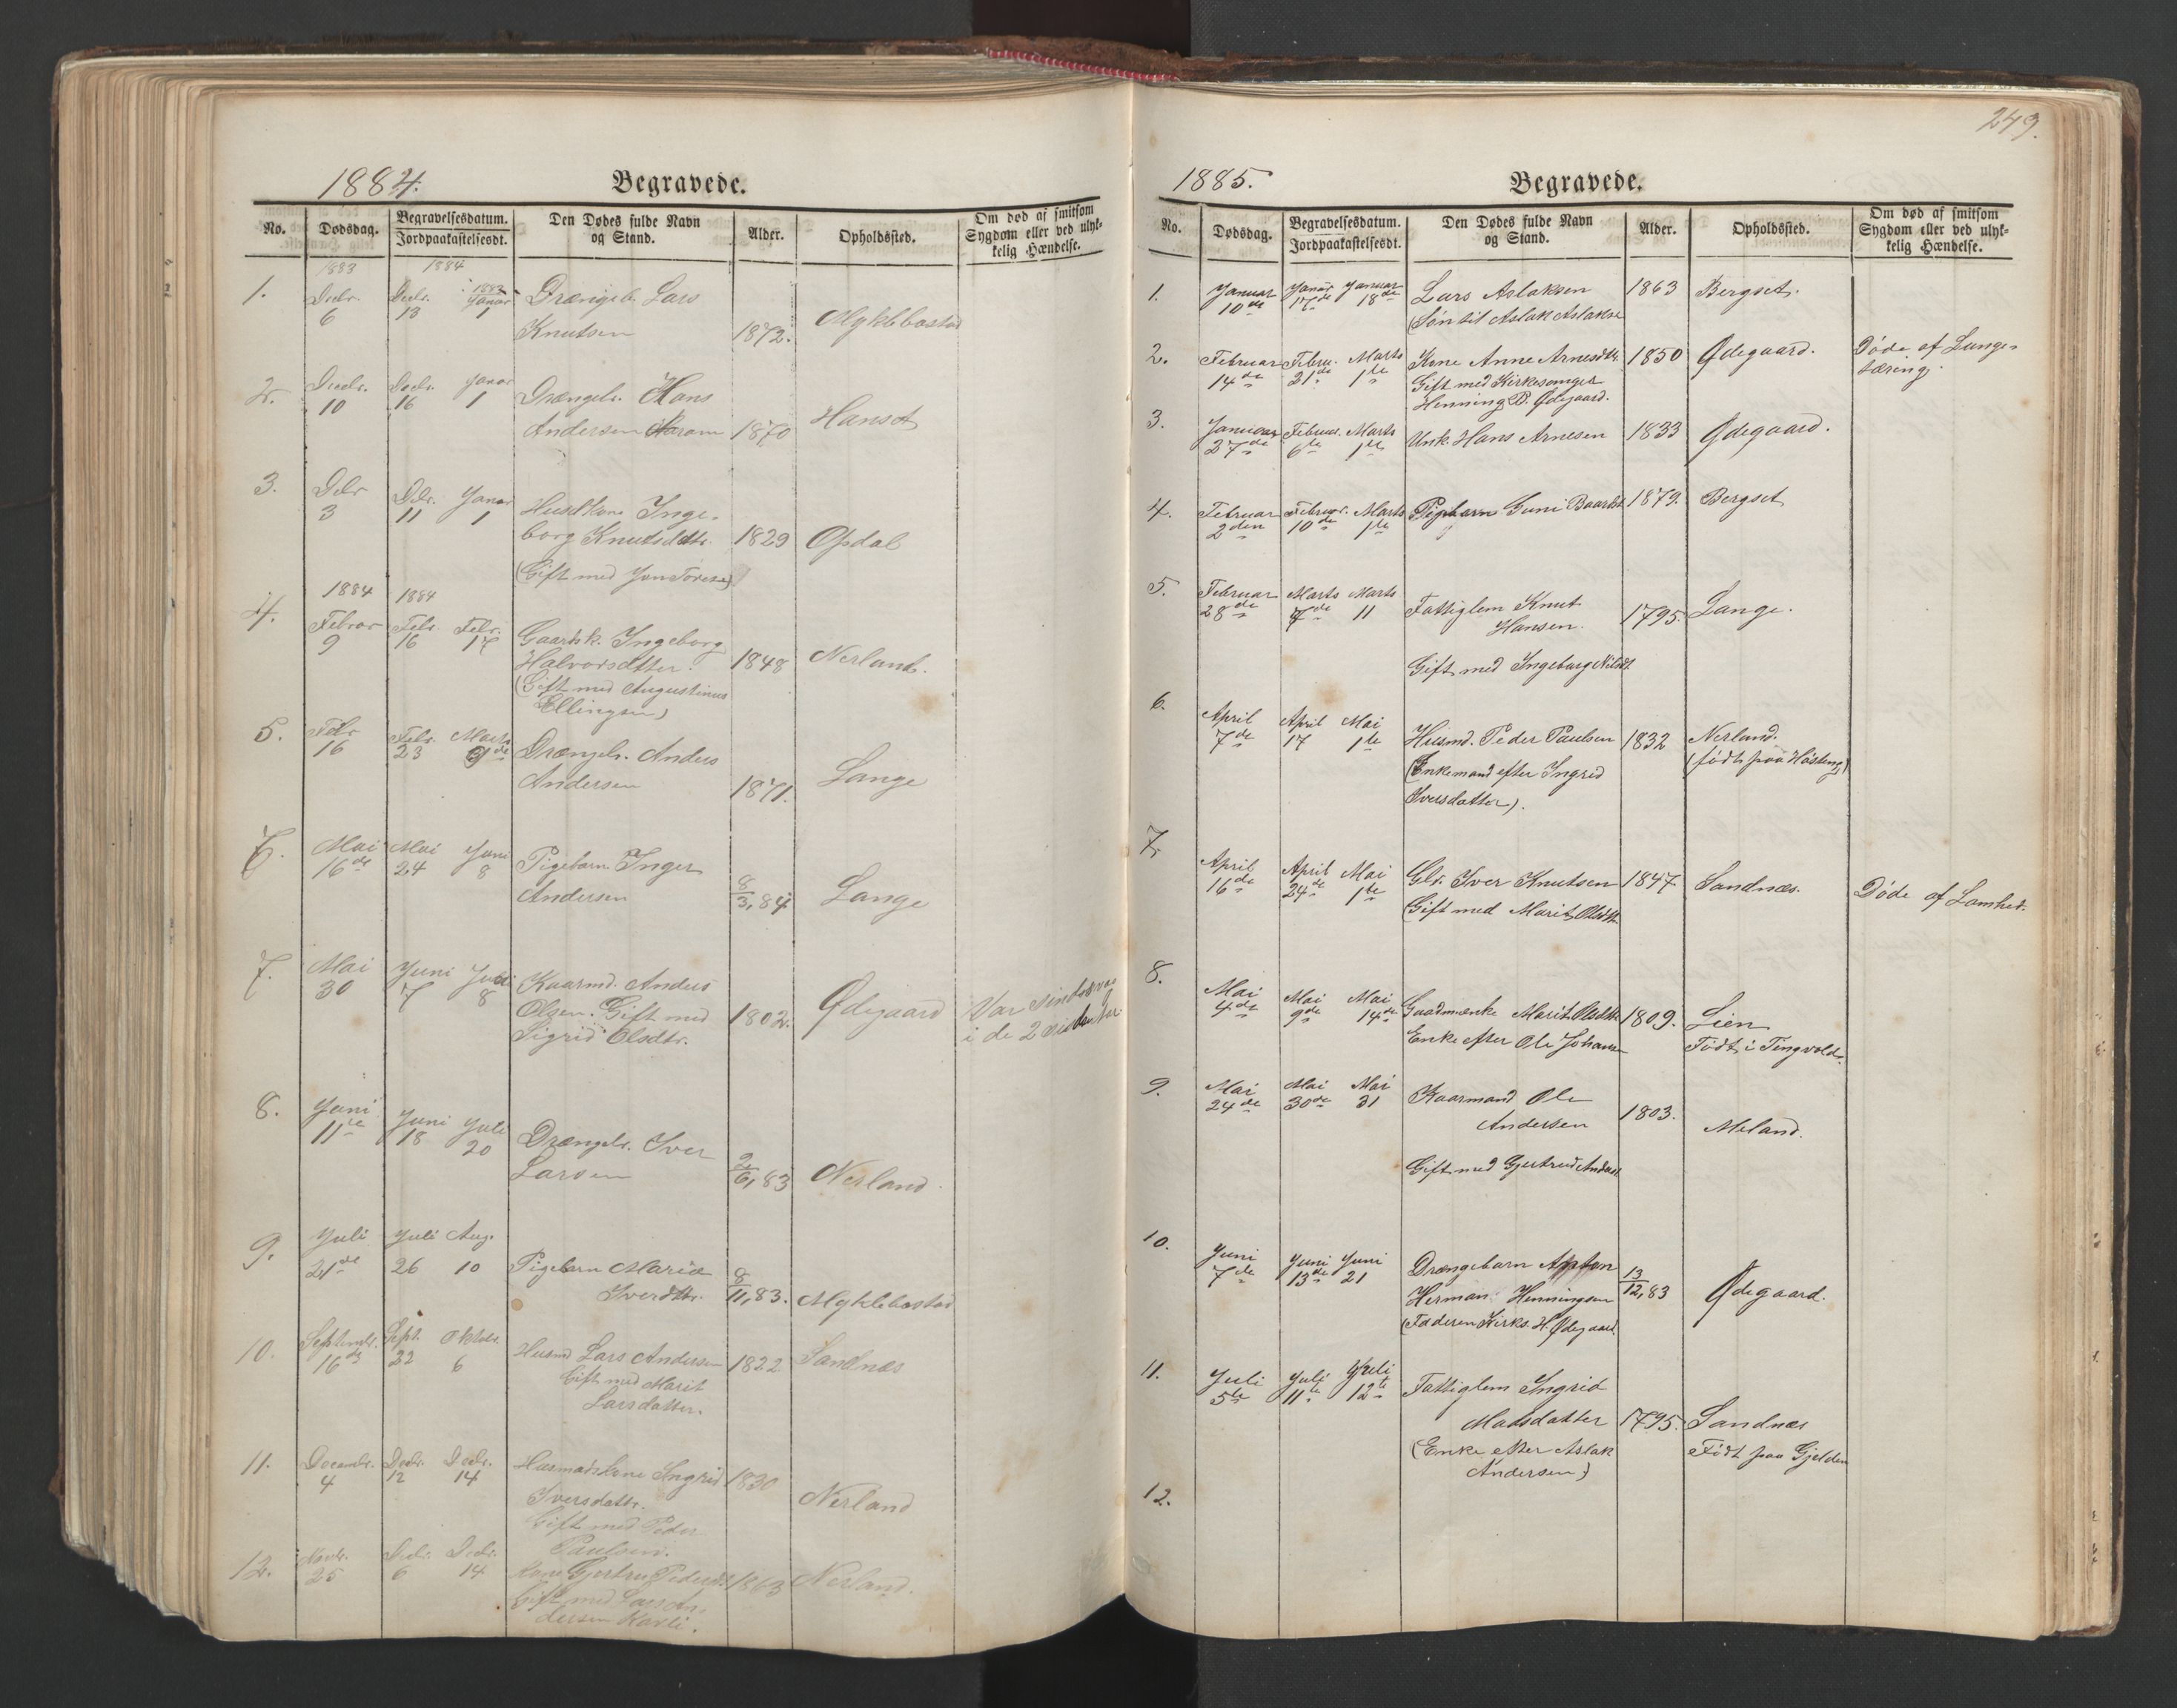 249.
1884.
Begravede.
No.
Dødsdag.
Begravelsesdatum.
Jordpaakastelsesdt.
Den Dødes fulde Navn
og Stand.
Alder.
Opholdssted.
Om død af smitsom
Sygdom eller ved ulyk-
kelig Hændelse.
1883 1884
1. Decbr. 6 Decbr. 13 Januar 1 Drængeb. Lars
Knutsen 1872. Myklebostad
2. Decbr. 10 Decbr. 16 Januar 1 Drængeb. Hans
Andersen 1870 Hanset
3. Dcbr 3 Dcbr. 11 Januar 1 Huusfkone Inge-
borg Knutsdattr. 1829 Opdal
(Gift med Jon Toresen)
1884 1884
4. Februar 9 Febr. 16 Febr. 17 Gaardk. Ingeborg
Halvorsdatter. 1848 Nerland.
(Gift med Augustinus
Ellingsen)
5. Febr 16 Febr. 23 Marts Drængeb. Anders
Andersen 1871. Lange
6. Mai 16de Mai 24 Juni 8 Pigebarn Inger
Andersen 8/3, 84 Lange
7. Mai 30 Juni 7 8 Kaarmd. Anders
Olsen. Gift med 1802. Ødegaard Var sindssvag
Sigrid Olsdtr. i de 2 sidste
8. Juni 11te Juni 18 Juli 20 Drængeb. Iver
Larsen 2/6, 83 Nerland.
9. Juli 21de Juli 26 Aug. 10 Pigebarn Marie
Iversdtr. 8/11, 83. Myklebostad
10. Septembr. 16de Sept. 22 Oktobr. 6 Husmd Lars Andersen 1822 Sandnæs
Gift med Marit
Larsdatter.
11. Decembr. 4 Decbr. 12 Decbr. 14 Husmadskone Ingrid 1830
Iversdattr. Nerland
Gift med Peder
Paulsen.
12. Novbr. 25 Decbr. 6 Decbr. 14 Kone Gjertru Pedersdt 1863 Nerland.
Gift med Lars An-
dersen Kavli.
1885.
Begravede.
No.
Dødsdag.
Begravelsesdatum.
Jordpaakastelsesdt.
Den Dødes fulde Navn
og Stand.
Alder.
Opholdssted.
Om død af smitsom
Sygdom eller ved ulyk-
kelig Hændelse.
1. Januar 10de Januar 17de Januar 18de Lars Aslaksen 1863 Bergset.
(Søn til Aslak Aslaksen
2. Februar 14de Febru. 21de Marts 1te Kone Anne Arnesdtr. 1850 Ødegaard. Døde af Lunge-
Gift med Kirkesanger tæring.
Henning P. Ødegaard.
3. Januar 27de Februar. 6te Marts 1te Unk. Hans Arnesen 1833 Ødegaard.
4. Februar 2den Februar. 10de Marts 1te Pigebarn Guni Baardsdt 1879. Bergset
5. Februar 28de Marts 7de Marts 11 Fattiglem Knut
Hansen. 1795. Lange.
Gift med Ingeborg Nilsdt.
6. April 7de April 17 Mai 1te Husmd. Peder Paulsen 1832 Nerland.
(Enkemand efter Ingrid (født paa Høsteng)
Iversdatter).
7. April 16de April 24de Mai 1te Gbr. Iver Knutsen 1847 Sandnæs. Døde af Lamhed.
(Gift med Marit Olsdtr.
8. Mai 4de Mai 9de Mai 14de Gaadmænke Marit Olsdtr. 1809. Lien
Enke efter Ole Johansen Født i Tingvold.
9. Mai 24de Mai 30de Mai 31 Kaarmand Ole
Andersen 1803. Meland.
Gift med Gjertrud Andersdt
10. Juni 7de Juni 13de Juni 21 Drængebarn Anton
Herman Henningsen 13/12, 83 Ødegaard.
(Faderen Kirks. H. Ødegaard.
11. Juli 5te Juli 11te Juli 12te Fattiglem Ingrid
Madsdatter 1795. Sandnæs
(Enke efter Aslak Født paa Gjelden
Andersen)
12.